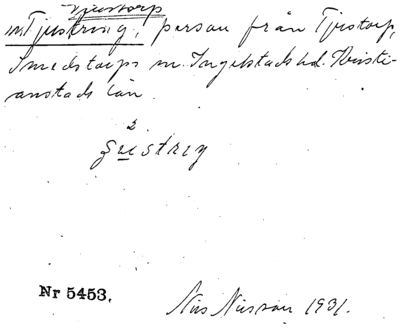 Tjustorp
m Tjustring, person från Tjustorp,
Smedstorps sn. Ingelstads hd. Kristi-
anstads län.
2
Nr 5453.
Nils Nilsson 1931.